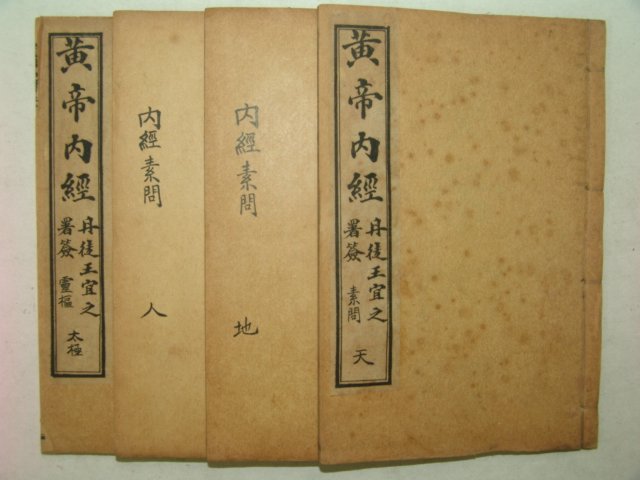 黄帝内經
丹徒王宜之
署簽
素問
天
内經素問
地
内經素問
人
黄帝内經
丹徒王宜之
署簽
靈樞
太極